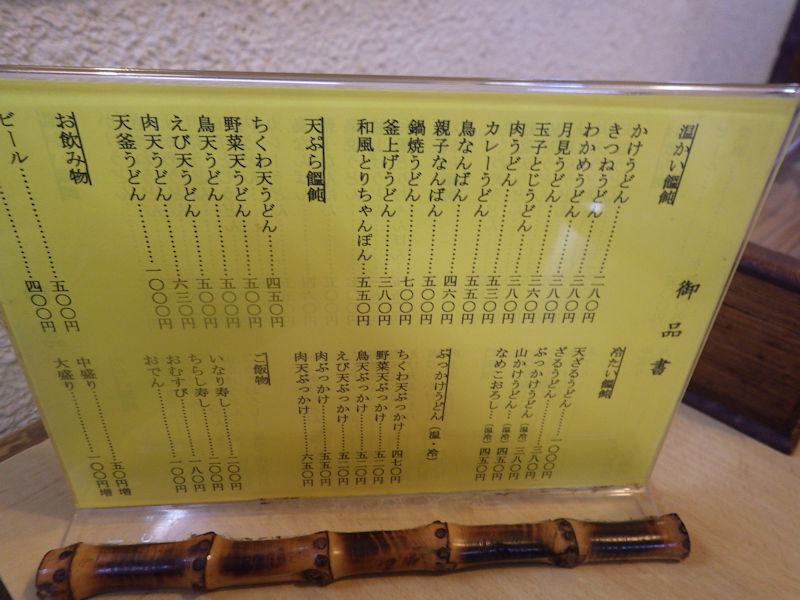 御品書
温かい饂飩
かけうどん…………二八〇円
きつねうどん…………三八〇円
わかめうどん…………三八〇円
月見うどん…………三六〇円
玉子とじうどん…………三八〇円
肉うどん…………五三〇円
カレーうどん…………五五〇円
鳥なんばん…………四六〇円
親子なんばん…………五〇〇円
鍋焼うどん…………七〇〇円
釜上げうどん…………三八〇円
和風とりちゃんぽん…五五〇円
天ぷら饂飩
ちくわ天うどん…………四五〇円
野菜天うどん…………五〇〇円
鳥天うどん…………五〇〇円
えび天うどん…………五〇〇円
肉天うどん…………六三〇円
天釜うどん…………一〇〇〇円
お飲み物
ビール…………五〇〇円
…………四〇〇円
冷たい饂飩
天ざるうどん……一〇〇〇円
ざるうどん…………三八〇円
ぶっかけうどん…(温冷)三八〇円
山かけうどん…(温冷)四五〇円
なめこおろし…(温冷)四五〇円
ぶっかけうどん(温・冷)
ちくわ天ぶっかけ……四七〇円
野菜天ぶっかけ……五二〇円
鳥天ぶっかけ……五二〇円
えび天ぶっかけ……五二〇円
肉ぶっかけ…………五五〇円
肉天ぶっかけ…………六五〇円
ご飯物
いなり寿し…………二〇〇円
ちらし寿し…………二〇〇円
おむすび…………一八〇円
おでん…………一〇〇円
中盛り…………五〇円増
大盛り…………一〇〇円増